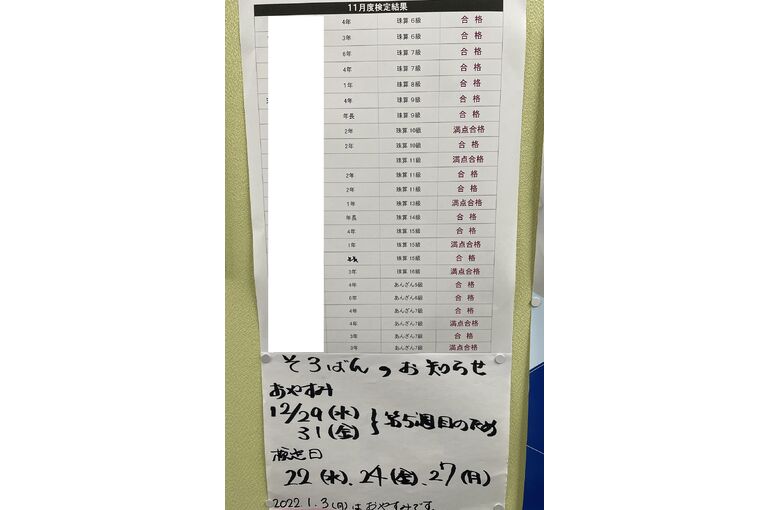 11月度検定結果
4年 珠算 6級 合格
3年 珠算 6級 合格
6年 珠算 7級 合格
4年 珠算 7級 合格
1年 珠算 8級 合格
4年 珠算 9級 合格
年長 珠算 9級 合格
2年 珠算 10級 満点合格
2年 珠算 10級 合格
珠算 11級 満点合格
2年 珠算 11級 合格
2年 珠算 11級 合格
1年 珠算 13級 満点合格
年長 珠算 14級 合格
4年 珠算 15級 合格
1年 珠算 15級 満点合格
珠算 15級 合格
3年 珠算 16級 満点合格
4年 あんざん5級 合格
6年 あんざん6級 合格
4年 あんざん7級 合格
4年 あんざん7級 満点合格
3年 あんざん7級 合格
3年 あんざん7級 満点合格
そろばんのお知らせ
おやすみ
12/29(水)
31(金) }第5週目のため
検定日
22(水)、24(金)、27(月)
2022.1.3(月)はおやすみです。